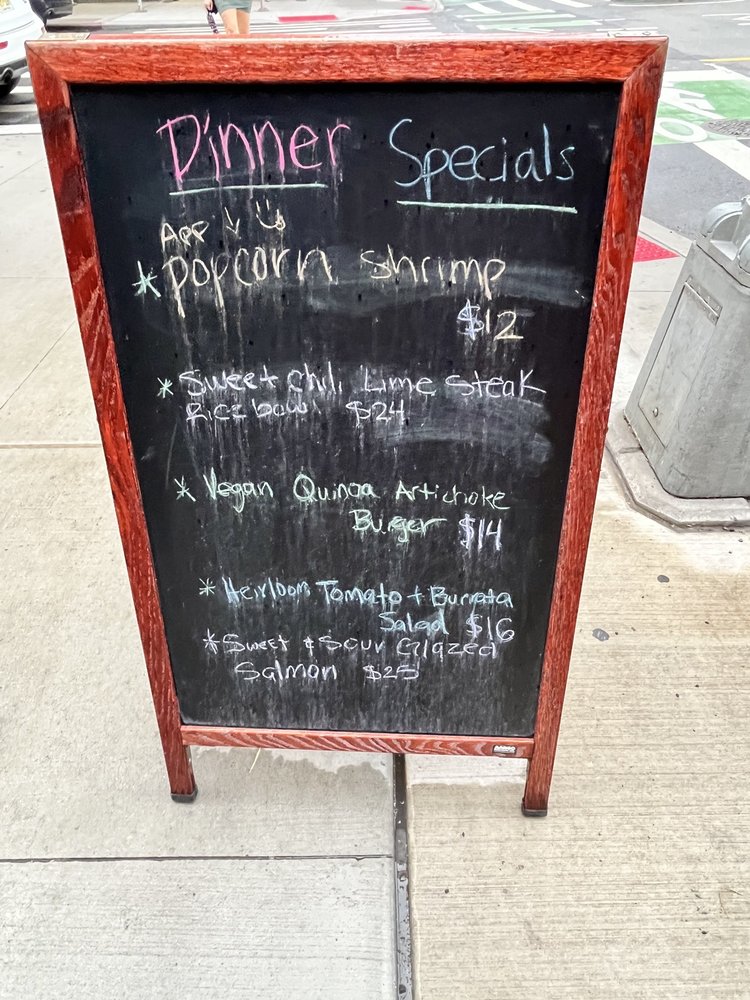 Dinner Specials
App ↓
* Popcorn Shrimp
$12
* Sweet Chili Lime Steak
Rice bowl $24
* Vegan Quinoa Artichoke
Burger $14
* Heirloom Tomato + Burrata
Salad $16
* Sweet & Sour Glazed
Salmon $25